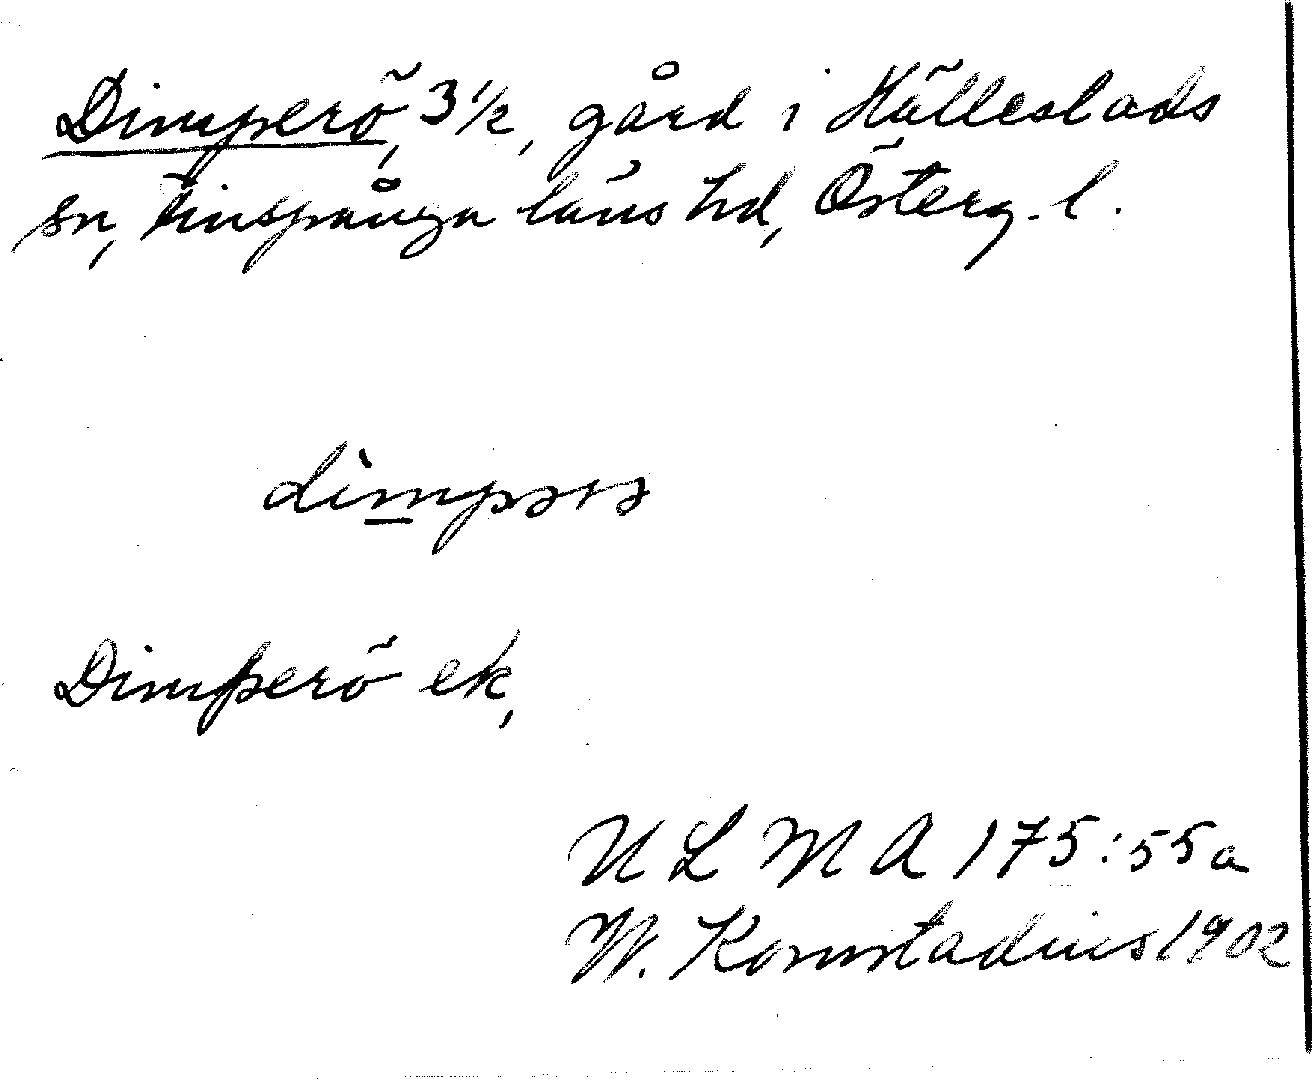 Dimperö, 3 1/2, gård i Hällestads
sn, Finspånga läns hd, Österg. l.
Dimperö ek,
ULMA 175:55a
W. Kornstadius 1902